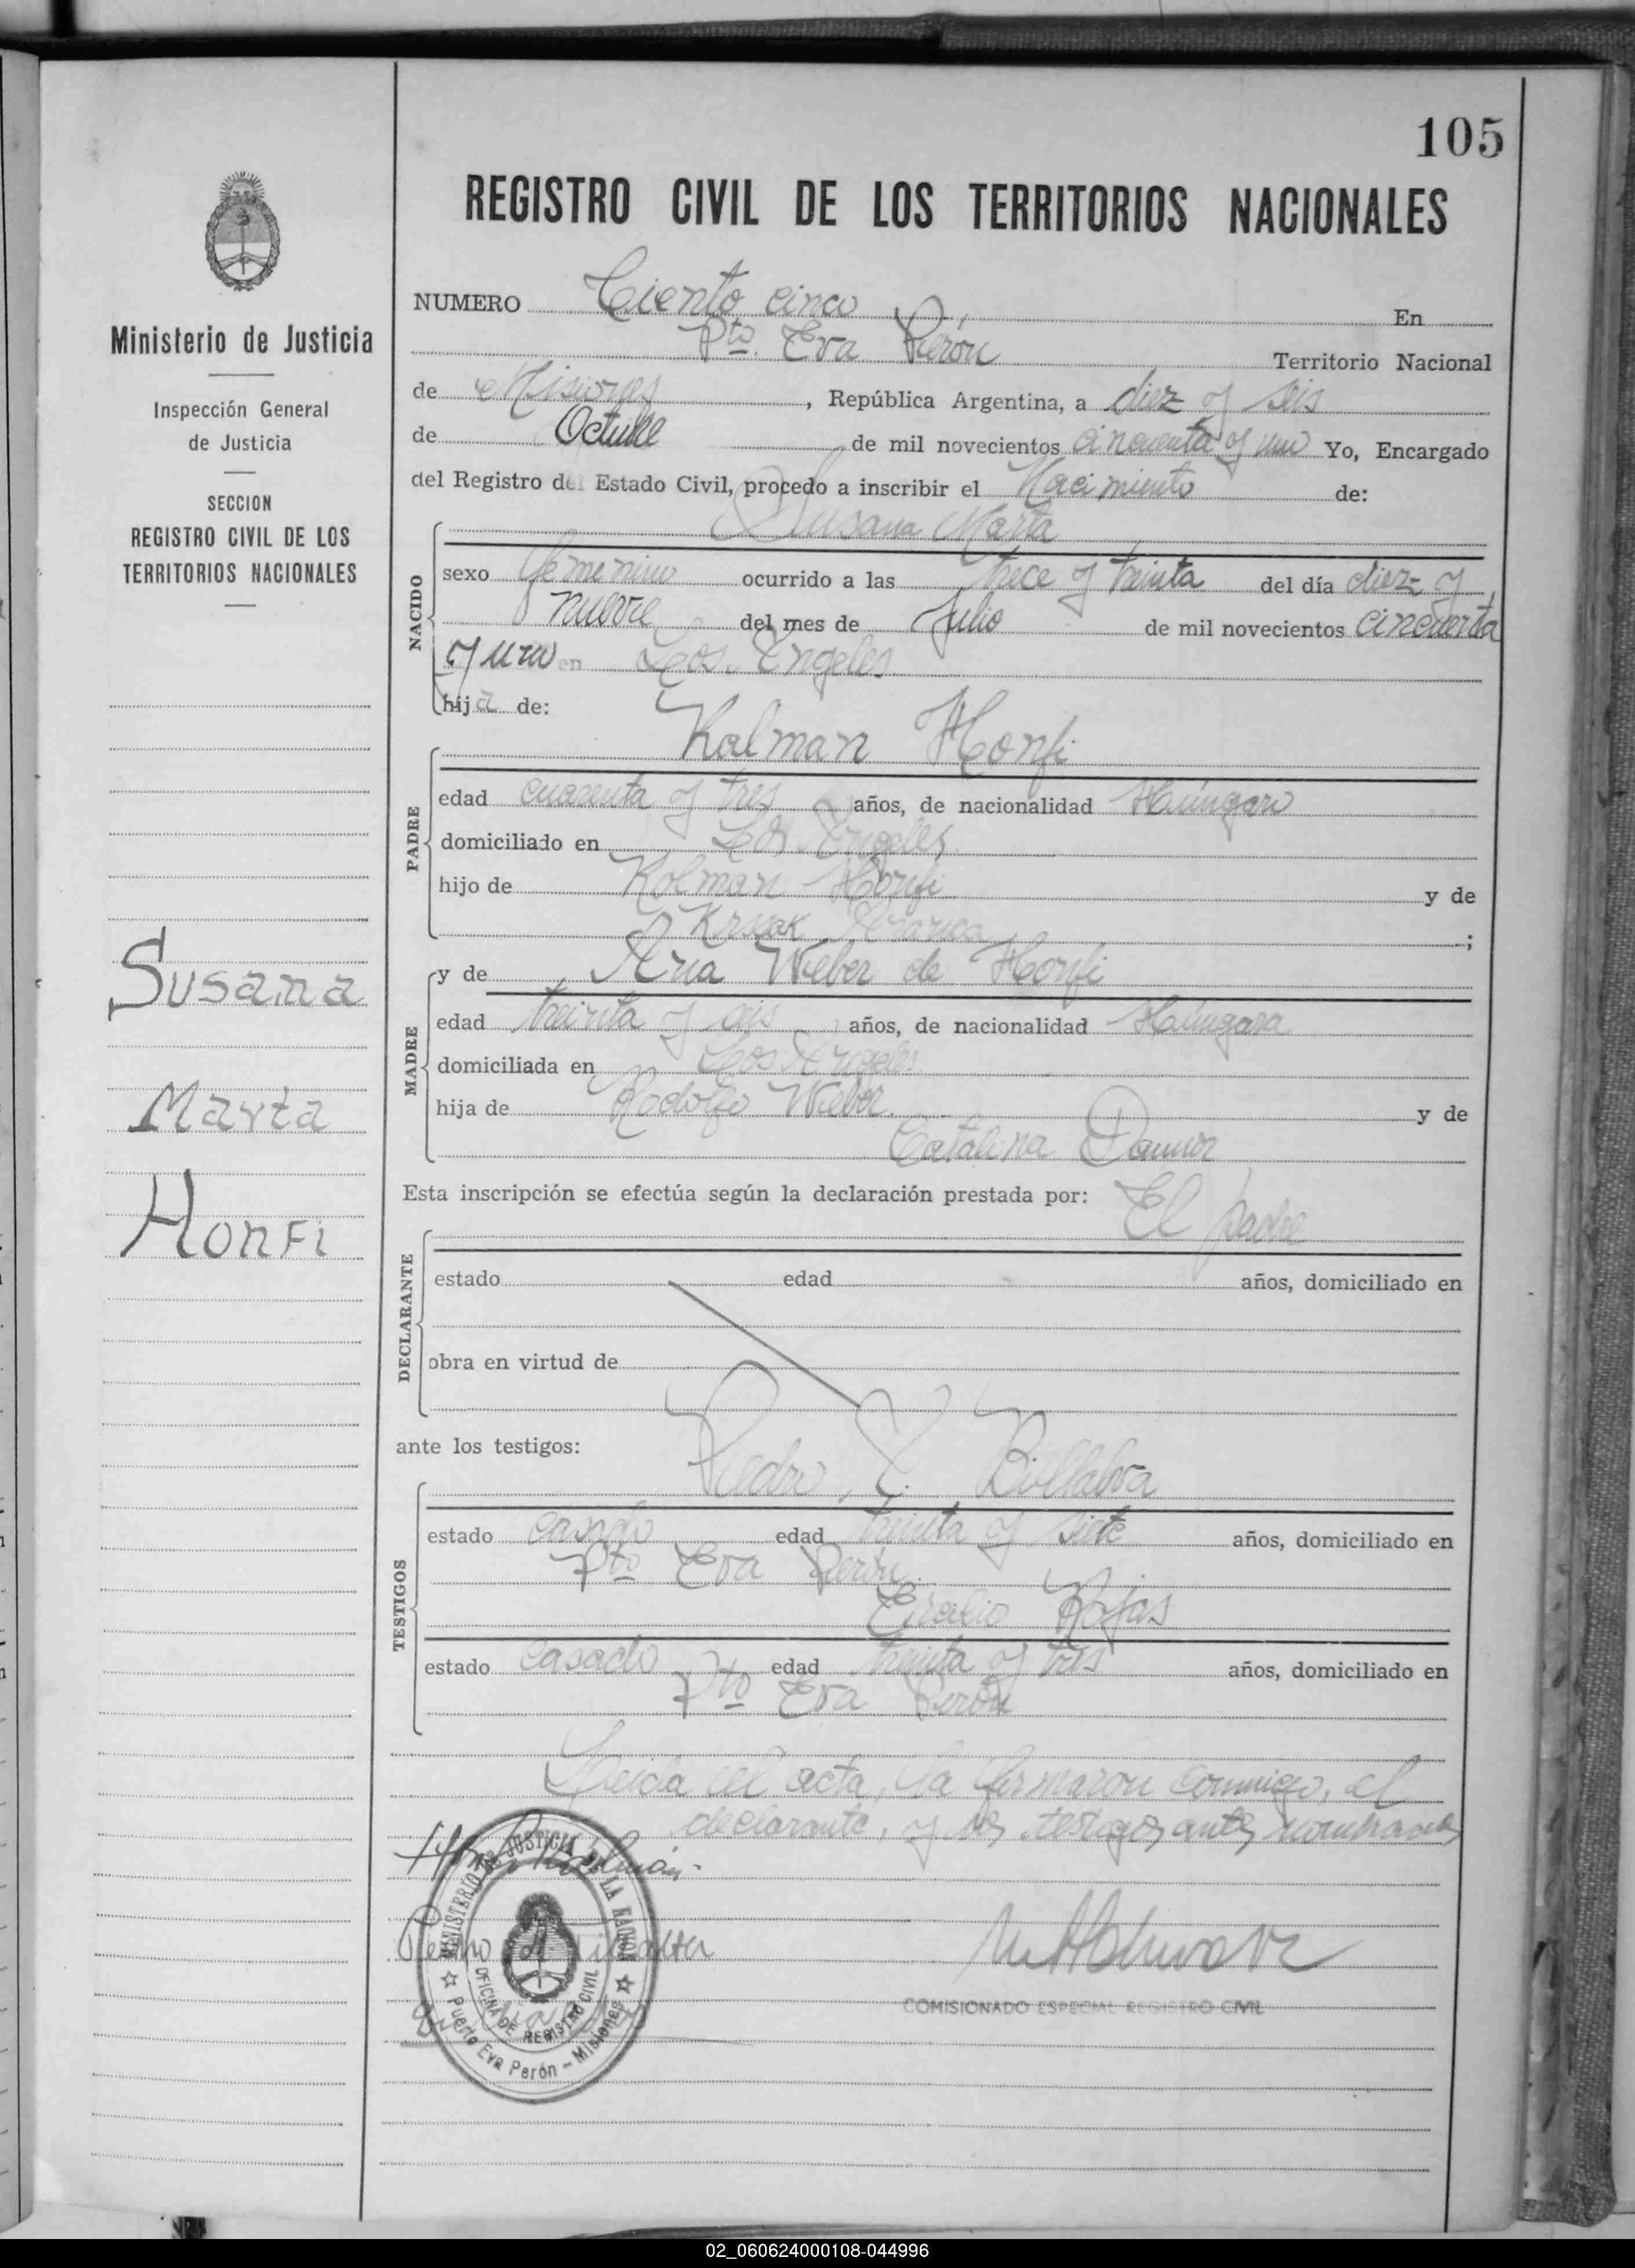 105
REGISTRO CIVIL DE LOS TERRITORIOS NACIONALES
Ministerio de Justicia
Inspección General
de Justicia
SECCION
REGISTRO CIVIL DE LOS
TERRITORIOS NACIONALES
Susana
Marta
Honfi
NUMERO Ciento cinco En
Pto. Eva Perón Territorio Nacional
de Misiones, República Argentina, a diez y seis
de Octubre de mil novecientos cincuenta y uno Yo, Encargado
del Registro del Estado Civil, procedo a inscribir el Nacimiento de:
NACIDO
Susana Marta
sexo femenino ocurrido a las trece y treinta del día diez y
nueve del mes de Julio de mil novecientos cincuenta
y uno en Los Angeles
hija de:
PADRE
Kalman Honfi
edad cuarenta y tres años, de nacionalidad Húngaro
domiciliado en Los Angeles
hijo de Kolman Honfi y de
;
MADRE
y de Ana Weber de Honfi
edad treinta y seis años, de nacionalidad Húngara
domiciliada en Los Angeles
hija de Rodolfo Weber y de
Catalina
Esta inscripción se efectúa según la declaración prestada por: El padre
DECLARANTE
estado edad años, domiciliado en
obra en virtud de
ante los testigos:
TESTIGOS
Pedro
estado casado edad treinta y siete años, domiciliado en
Pto Eva Perón
Rojas
estado casado edad treinta y tres años, domiciliado en
Pto Eva Perón
Leida el acta, la firmaron conmigo, el
declarante, y los testigos antes nombrados
MINISTERIO DE JUSTICIA DE LA NACION
OFICINA DE REGISTRO CIVIL
Puerto Eva Perón - Misiones
COMISIONADO ESPECIAL REGISTRO CIVIL
02_060624000108-044996